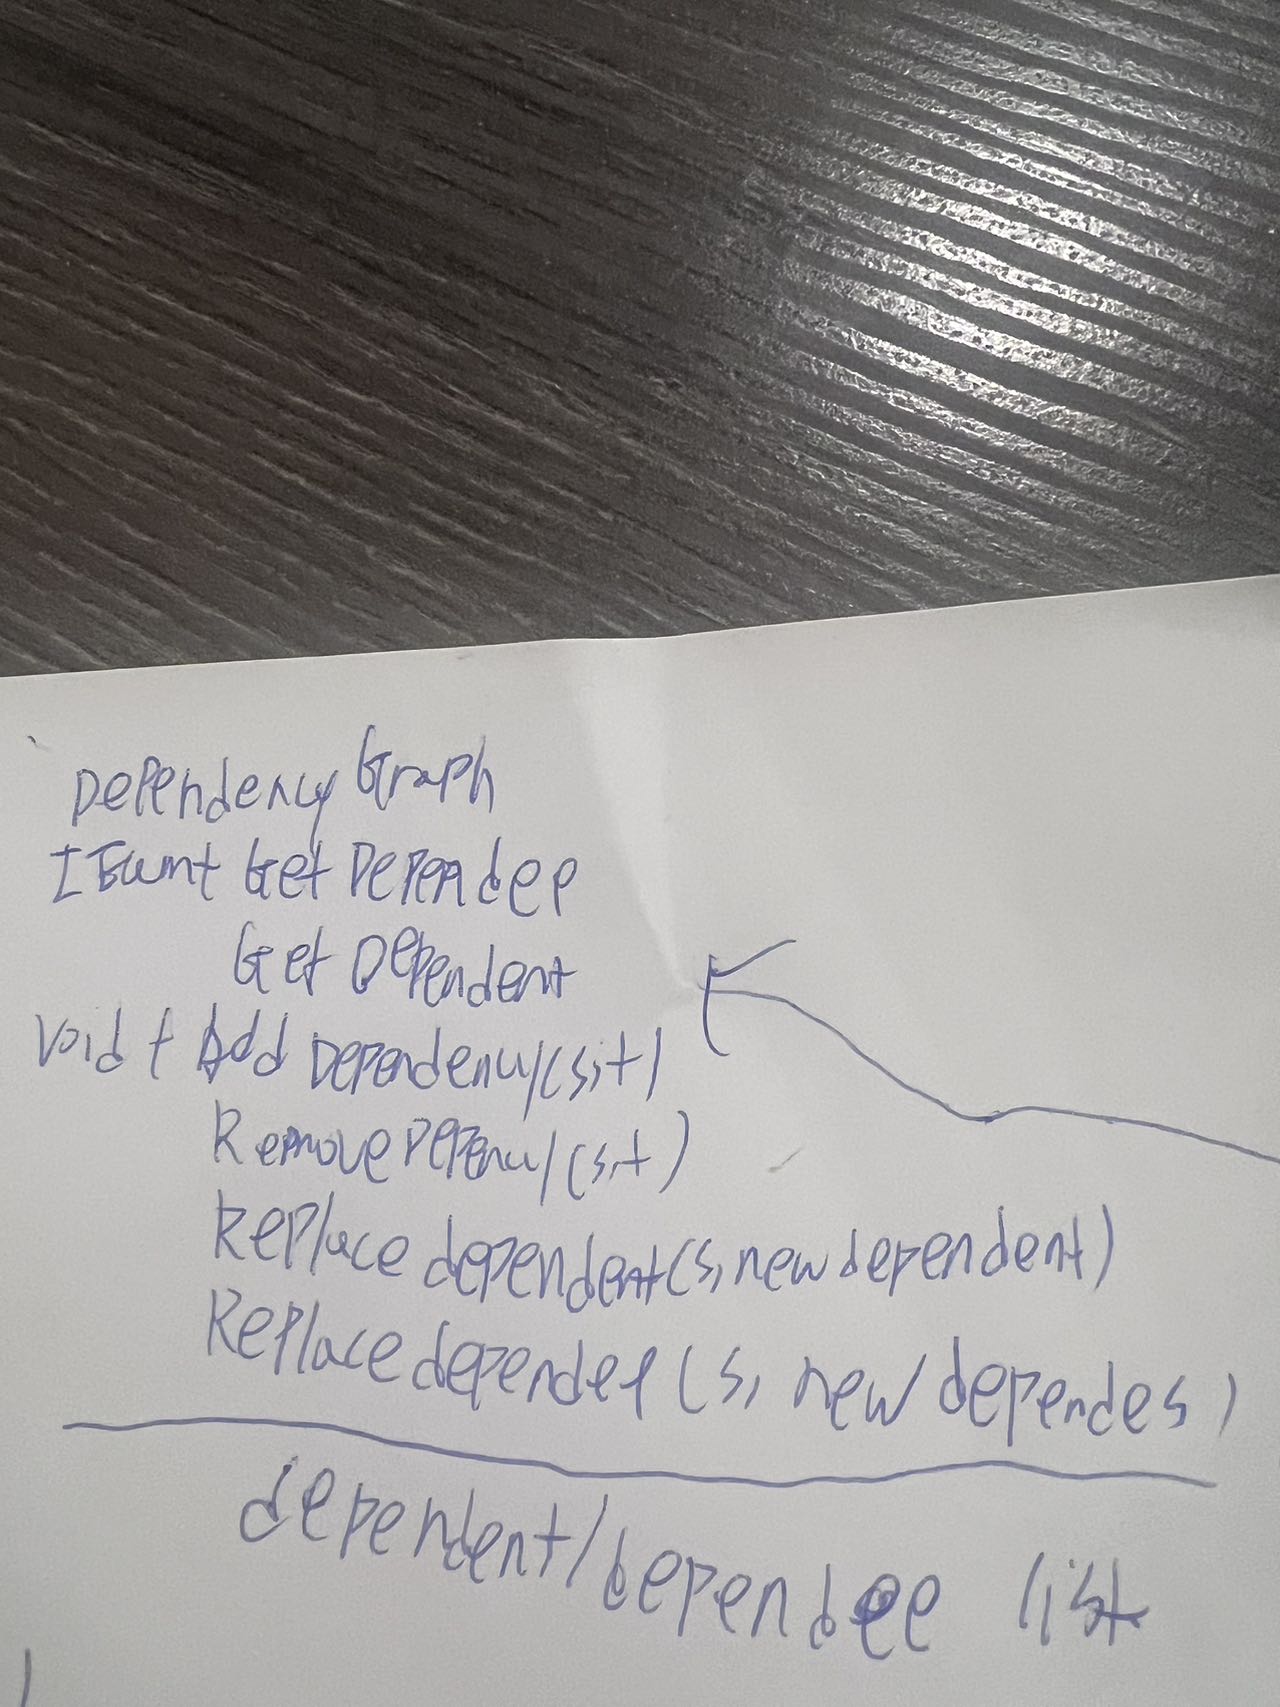 Dependency Graph
IEumt Get Dependee
Get Dependent
Void + Add Dependency(s,t)
Remove Depency(s,t)
Replace dependent(s, new dependent)
Replace dependee(s, new dependes)
dependent/dependee list